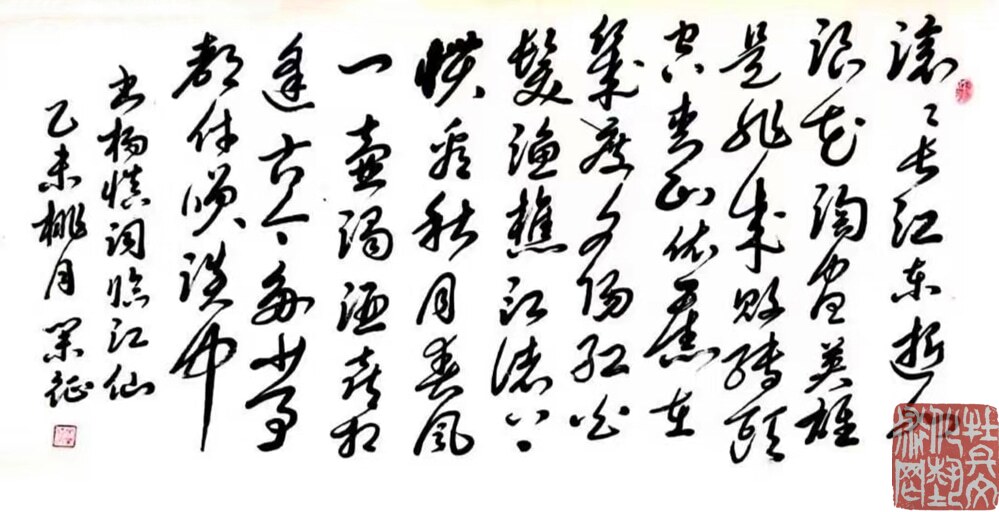 滚〻长江东逝水
浪花淘尽英雄
是非成败转头
空青山依旧在
几度夕阳红白
发渔樵江渚上
惯看秋月春风
一壶浊酒喜相
逢古今多少事
都付笑谈中
书杨慎词临江仙
乙未桃月 征
牡丹文
化艺
术网